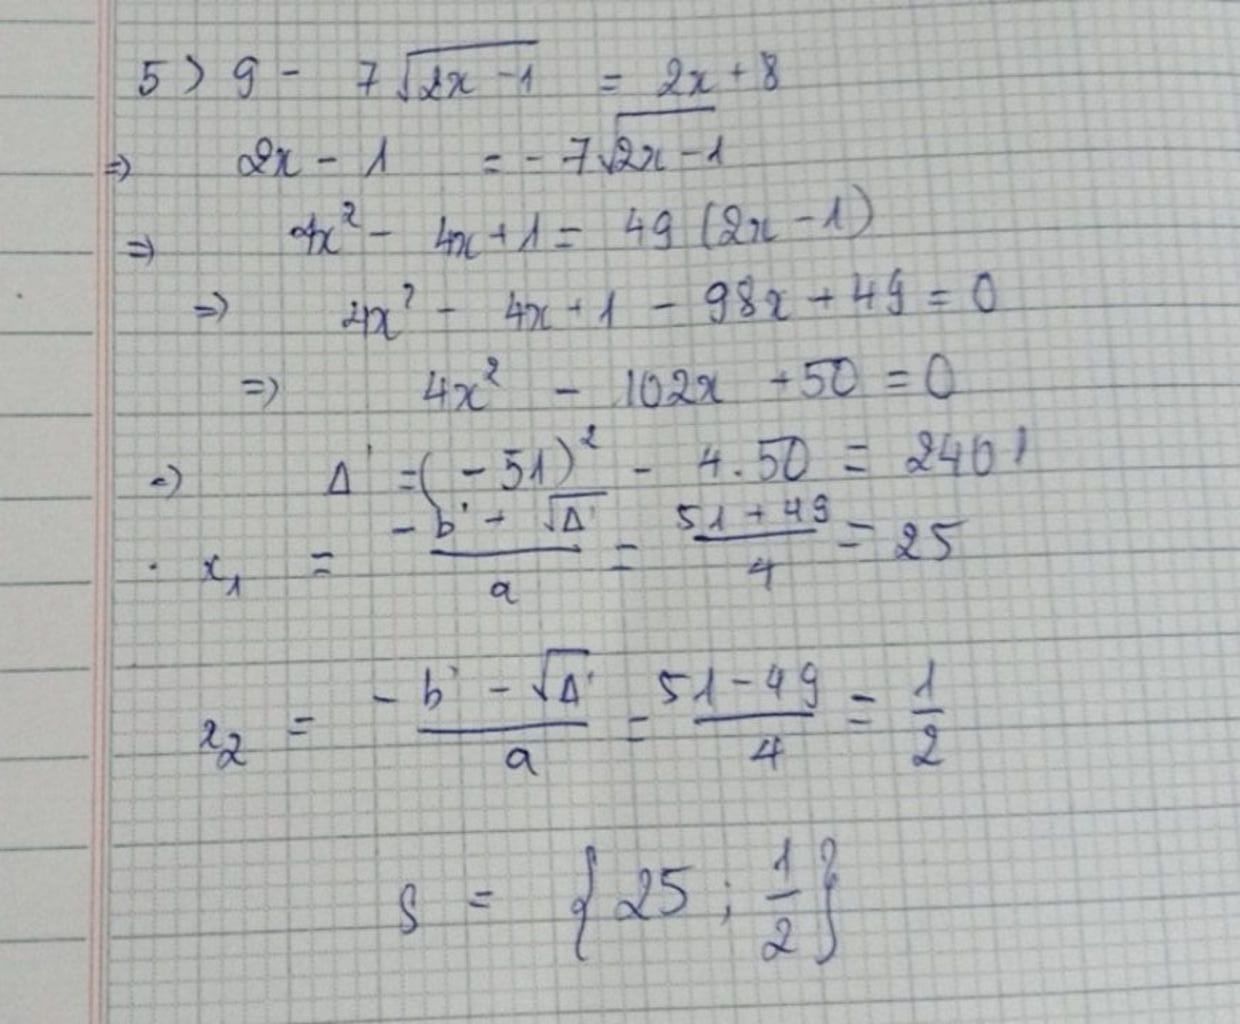 5) 9 - 7√(2x - 1) = 2x + 8
⇒ 2x - 1 = - 7√(2x - 1)
⇒ 4x² - 4x + 1 = 49 (2x - 1)
⇒ 4x² - 4x + 1 - 98x + 49 = 0
⇒ 4x² - 102x + 50 = 0
⇒ Δ' = (-51)² - 4.50 = 2401
. x₁ = (-b' + √Δ')/a = (51 + 49)/4 = 25
x₂ = (-b' - √Δ')/a = (51 - 49)/4 = 1/2
S = {25 ; 1/2}